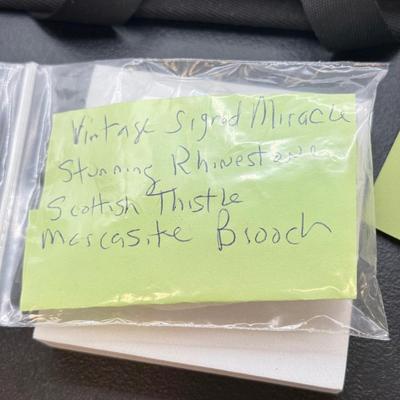 Vintage Signed Miracle
Stunning Rhinestone
Scottish Thistle
Marcasite Brooch